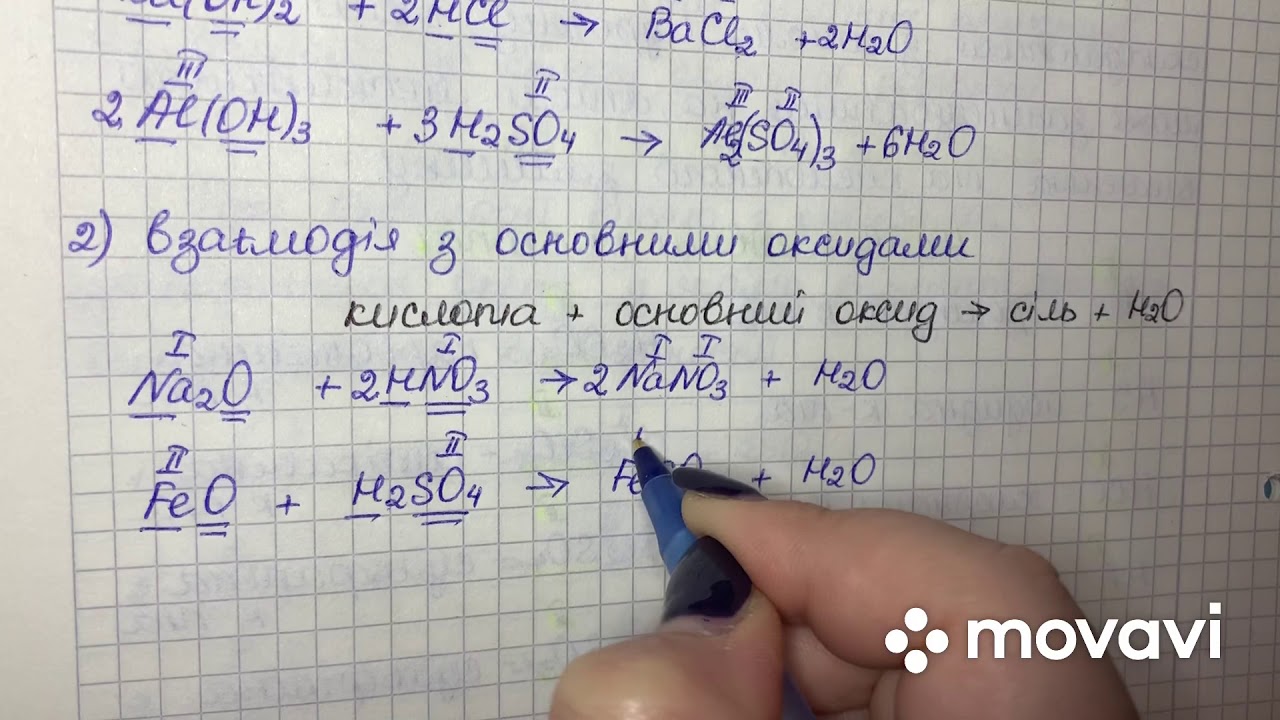 (OH)2 + 2HCl → BaCl2 + 2H2O
III II III II
2Al(OH)3 + 3H2SO4 → Al2(SO4)3 + 6H2O
2) Взаємодія з основними оксидами
кислота + основний оксид → сіль + H2O
I I I I
Na2O + 2HNO3 → 2NaNO3 + H2O
II II
FeO + H2SO4 → Fe + H2O
movavi